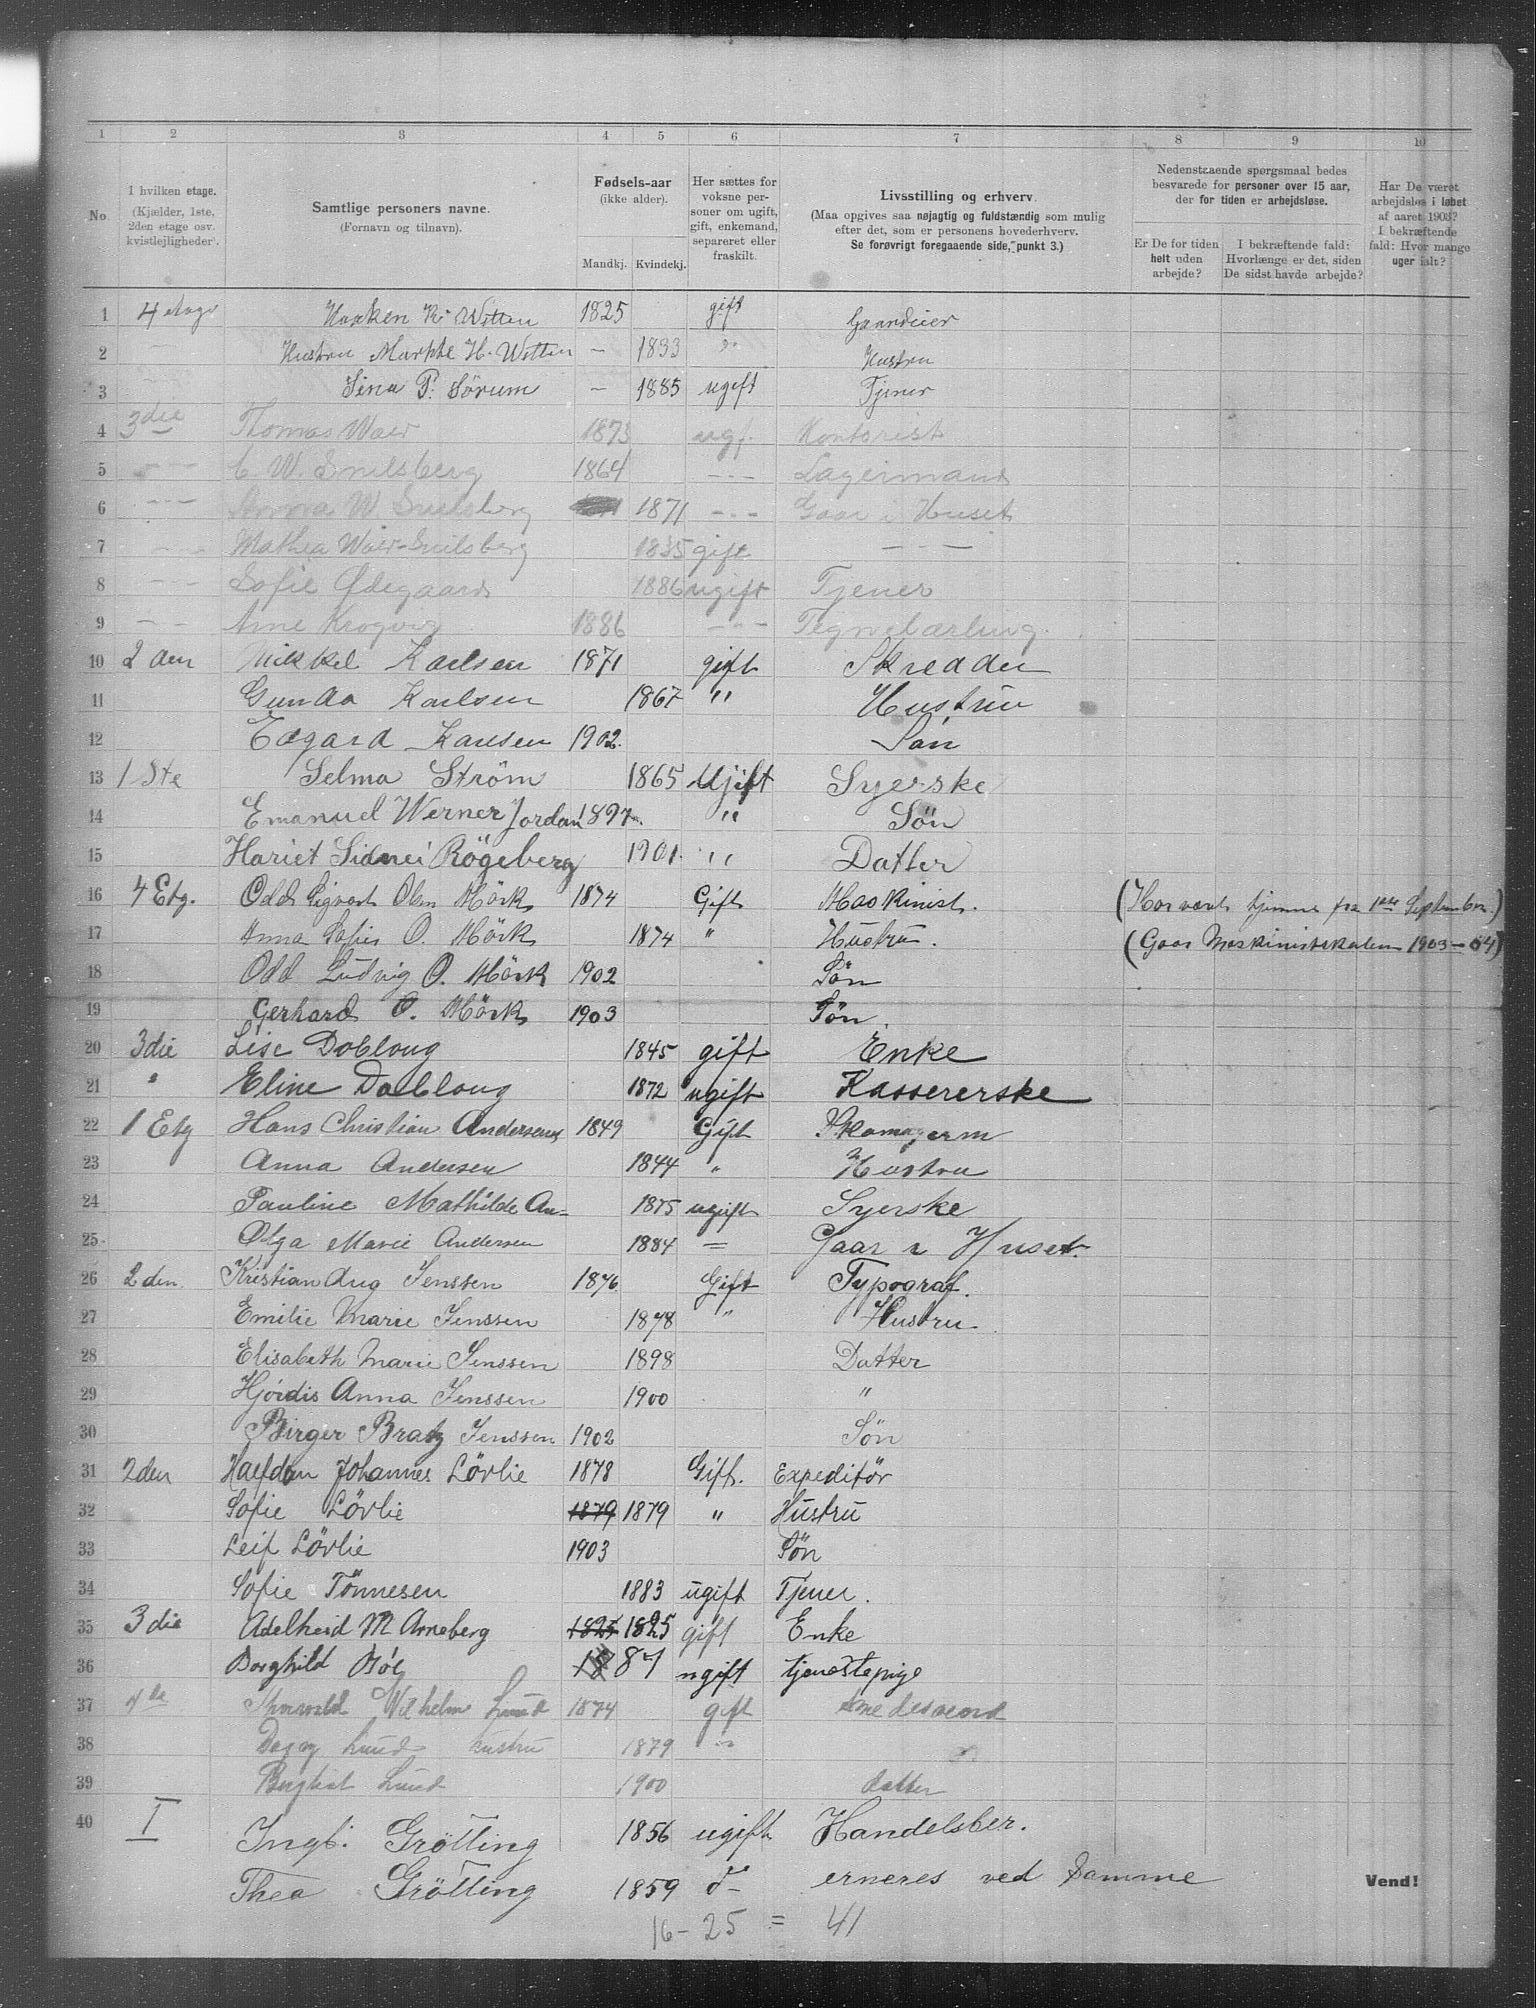 1 2 3 4 5 6 7 8 9 10
No. I hvilken etage. (Kjælder, 1ste, 2den etage osv. kvistlejligheder). Samtlige personers navne. (Fornavn og tilnavn). Fødsels-aar (ikke alder). Mandkj. Kvindekj. Her sættes for voksne personer om ugift, gift, enkemand, separeret eller fraskilt. Livsstilling og erhverv. (Maa opgives saa nøjagtig og fuldstændig som mulig efter det, som er personens hovederhverv. Se forøvrigt foregaaende side, punkt 3.) Nedenstaaende spørgsmaal bedes besvarede for personer over 15 aar, der for tiden er arbejdsløse. Er De for tiden helt uden arbejde? I bekræftende fald: Hvorlænge er det, siden De sidst havde arbejde? Har De været arbejdsløs i løbet af aaret 1903? I bekræftende fald: Hvor mange uger ialt?
1 4 etage Haaken K. Witten 1825 gift Gaardeier
2 Hustru Marthe H. Witten – 1833 " Hustru
3 Sina P. Sörum – 1885 ugift Tjener
4 3die Thomas Waer 1873 ugf. Kontorist
5 – – C. W. Snilsberg 1864 – – – Lagermand
6 – – – W. Snilsberg 1871 – – – Gaar i Huset
7 – – Mathea Waer-Snilsberg 1835 gift – – –
8 – – – Sofie Ødegaard 1886 ugift Tjener
9 – – – Arne Krogvig 1886 – – – Tegnelærling.
10 2 den Mikkel Karlsen 1871 gift Skredder
11 Gunda Karlsen 1867 " Hustru
12 Edgard Karlsen 1902. Sön
13 1 Ste Selma Ström 1865 Ugift Syerske
14 Emanuel Werner Jordan 1897 " Sön
15 Hariet Sidnei Rögeberg 1901. " Datter
16 4 Etg. Odd Sigvart Olsen Mörk 1874 Gift Maskinist. (Har været hjemme fra 1ste September.)
17 Anna Sofie O. Mörk 1874 " Hustru. (Gaar Maskinistskolen 1903–04)
18 Odd Ludvig O. Mörk 1902 Sön
19 Gerhard O. Mörk 1903 Sön.
20 3die Lise Dobloug 1845 gift Enke
21 " Eline Dobloug 1872 ugift Kassererske
22 1 Etg Hans Christian Andersen 1849 Gift Skomagerm
23 Anna Andersen 1844 " Hustru
24 Pauline Mathilde An- 1875 ugift Syerske
25 Olga Marie Andersen 1884 = Gaar i Huset.
26 2 den Kristian Aug Jenssen 1876. Gift Typograf.
27 Emilie Marie Jenssen 1878 " Hustru
28 Elisabeth Marie Jenssen 1898 Datter
29 Hjördis Anna Jenssen 1900 "
30 Birger Bratz Jenssen 1902 Sön
31 2den Halfdan Johannes Lövlie 1878 Gift. Expeditör
32 Sofie Lövlie 1879 1879 " Hustru
33 Leif Lövlie 1903 Sön
34 Sofie Tönnesen 1883 ugift Tjener.
35 3 die Adelheid M Arneberg 1825 1825 gift Enke
36 Borghild 18 87 ugift tjenestepige
37 4de Thorvald Vilhelm Lund 1874 gift Smedesvend
38 Dagny Lund hustru 1879 "
39 Lund 1900 datter
40 I Ingb. Grötting 1856 ugift Handelsber.
Thea Grötting 1859 d– erneres ved Samme
Vend!
16 – 25 = 41